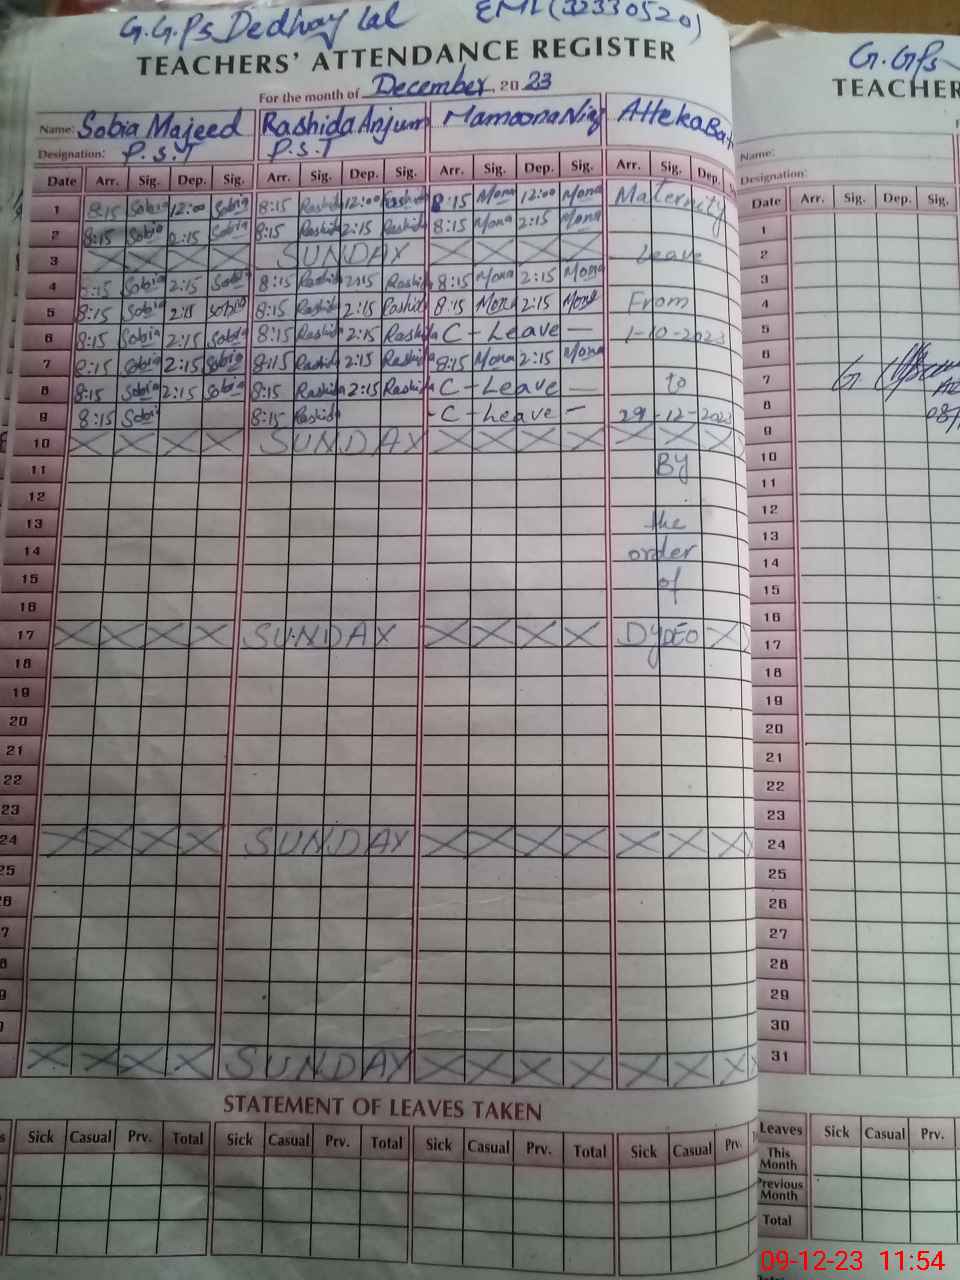 G.G.P.s Dedhay Lal EMI (32330520)
TEACHERS' ATTENDANCE REGISTER
For the month of December, 20 23
Name: Sobia Majeed Rashida Anjum Mamoona Niaz Atteka Bat
Designation: P.S.T P.S.T
Date Arr. Sig. Dep. Sig. Arr. Sig. Dep. Sig. Arr. Sig. Dep. Sig. Arr. Sig. Dep. S
1 8:15 Sobia 12:00 Sobia 8:15 Rashida 12:00 Rashida 8:15 Mona 12:00 Mona Maternity
2 8:15 Sobia 2:15 Sobia 8:15 Rashida 2:15 Rashida 8:15 Mona 2:15 Mona
3 SUNDAY Leave
4 8:15 Sobia 2:15 Sobia 8:15 Rashida 2:15 Rashida 8:15 Mona 2:15 Mona
5 8:15 Sobia 2:15 Sobia 8:15 Rashida 2:15 Rashida 8:15 Mona 2:15 Mona From
6 8:15 Sobia 2:15 Sobia 8:15 Rashida 2:15 Rashida C - Leave - 1-10-2023
7 8:15 Sobia 2:15 Sobia 8:15 Rashida 2:15 Rashida 8:15 Mona 2:15 Mona
8 8:15 Sobia 2:15 Sobia 8:15 Rashida 2:15 Rashida C - Leave - to
9 8:15 Sobia 8:15 Rashida - C - Leave - 29-12-2023
10 SUNDAY
11 By
12
13 the
14 order
15 of
16
17 SUNDAY DYDEO
18
19
20
21
22
23
24 SUNDAY
25
26
7
8
9
SUNDAY
STATEMENT OF LEAVES TAKEN
s Sick Casual Prv. Total Sick Casual Prv. Total Sick Casual Prv. Total Sick Casual Prv.
G.GPs
TEACHER
Name:
Designation:
Date Arr. Sig. Dep. Sig.
1
2
3
4
5
6
7
8
9
10
11
12
13
14
15
16
17
18
19
20
21
22
23
24
25
26
27
28
29
30
31
Leaves Sick Casual Prv.
This Month
Previous Month
Total
09-12-23 11:54